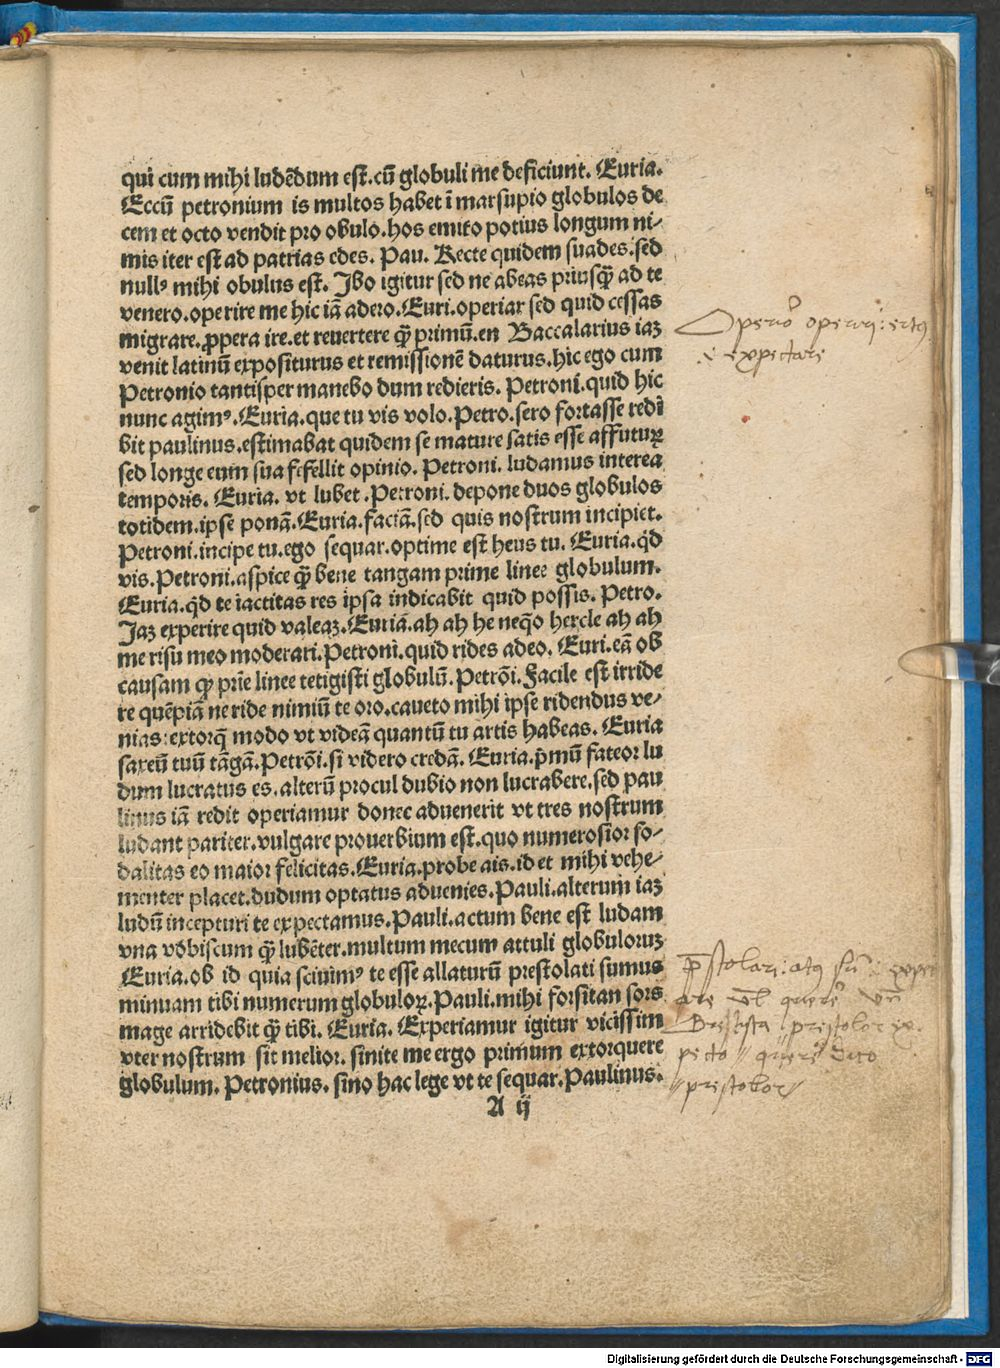 qui cum mihi ludēdum est.cū globuli me deficiunt. Euria.
Eccū petronium is multos habet ī marsupio globulos de
cem et octo vendit pro obulo.hos emito potius longum ni-
mis iter est ad patrias edes. Pau. Recte quidem suades.sed
nullꝰ mihi obulus est. Ibo igitur sed ne abeas priusq̄ ad te
venero.operire me hic iā adero.Euri.operiar sed quid cessas
migrare.ꝓpera ire.et reuertere q̄ primū.en Baccalarius iaꝫ
venit latinū expositurus et remissionē daturus.hic ego cum
Petronio tantisper manebo dum redieris. Petroni.quid hic
nunc agimꝰ.Euria.que tu vis volo.Petro.sero fortasse redi
bit paulinus.estimabat quidem se mature satis esse affuturꝝ
sed longe eum sua fefellit opinio. Petroni. ludamus interea
temporis. Euria. vt lubet.Petroni.depone duos globulos
totidem.ipse ponā.Euria.faciā.sed quis nostrum incipiet.
Petroni.incipe tu.ego sequar.optime est heus tu. Euria.qd̄
vis.Petroni.aspice q̄ bene tangam prime linee globulum.
Euria.qd̄ te iactitas res ipsa indicabit quid possis. Petro.
Iaꝫ experire quid valeaꝫ.Euria.ah ah he neq̄o hercle ah ah
me risu meo moderari.Petroni.quid rides adeo. Euri.eā ob
causam ꝙ prīe linee tetigisti globulū.Petrōi.Facile est irride
re quēpiā ne ride nimiū te oro.caueto mihi ipse ridendus ve-
nias:extorq̄ modo vt videā quantū tu artis habeas. Euria
saxeū tuū tāgā.Petrōi.si videro credā. Euria.pͥmū fateor lu
dum lucratus es.alterū procul dubio non lucrabere.sed pau
linus iā redit operiamur donec aduenerit vt tres nostrum
ludant pariter.vulgare prouerbium est.quo numerosior so-
dalitas eo maior felicitas.Euria.probe ais.id et mihi vehe-
menter placet.dudum optatus aduenies.Pauli.alterum iaꝫ
ludū incepturi te expectamus.Pauli.actum bene est ludam
vna vobiscum q̄ lubēter.multum mecum attuli globuloruꝫ
Euria.ob id quia sciuimꝰ te esse allaturū prestolati sumus
minuam tibi numerum globuloꝝ.Pauli.mihi forsitan sors
mage arridebit q̄ tibi. Euria. Experiamur igitur vicissim
vter nostrum sit melior. sinite me ergo primum extorquere
globulum. Petronius. sino hac lege vt te sequar.Paulinus.
A ij
expectare
Digitalisierung gefördert durch die Deutsche Forschungsgemeinschaft - DFG